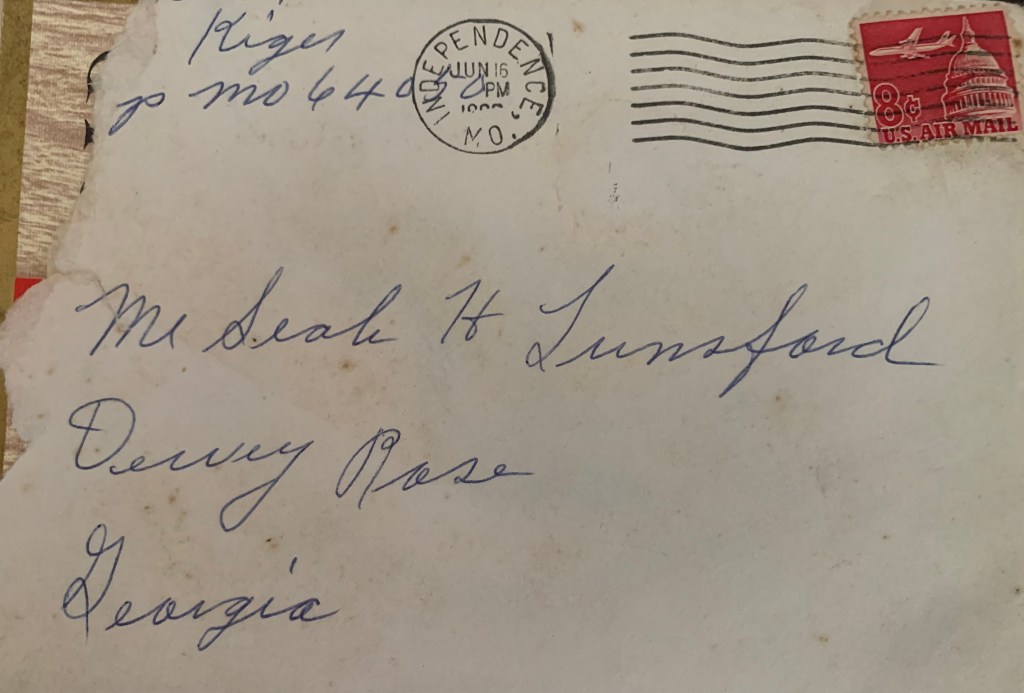 Kiger
mo 640
INDEPENDENCE, MO.
JUN 16
PM
8¢
U.S. AIR MAIL
Mr Seab H Lunsford
Dewey Rose
Georgia